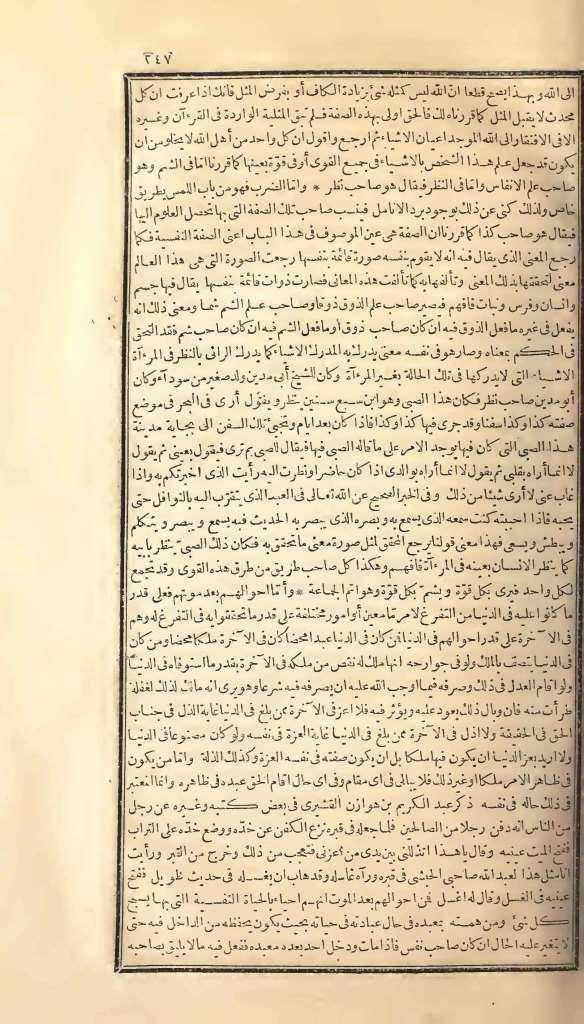 ٢٤٧
الى الله وبهذا يصح قطعا ان الله ليس كمثله شئ بزيادة الكاف أو بفرض المثل فانك اذا عرفت ان كل
محدث لا يقبل المثل كما قررناه لك فالحق اولى بهذه الصفة فلم تبق المثلية الواردة فى القرءآن وغيره
الا فى الافتقار الى الله الموجد اعيان الاشياء ثم ارجع واقول ان كل واحد من أهل الله لا يخلو من ان
يكون قد جعل علم هذا الشخص بالاشياء فى جميع القوى أو فى قوة بعينها كما قررنا اما فى الشم وهو
صاحب علم الانفاس واما فى النظر فيقال هو صاحب نظر * واما الضرب فهو من باب اللمس بطريق
خاص ولذلك كنى عن ذلك بوجود برد الانامل فينسب صاحب تلك الصفة التى بها تحصل العلوم اليها
فيقال هو صاحب كذا كما قررنا ان الصفة هى عين الموصوف فى هذا الباب اعنى الصفة النفسية فكما
رجع المعنى الذى يقال فيه انه لا يقوم بنفسه صورة قائمة بنفسها رجعت الصورة التى هى هذا العالم
معنى لتحققها بذلك المعنى وتألفها به كما تألفت هذه المعانى فصارت ذوات قائمة بنفسها يقال فيها جسم
وانسان وفرس ونبات فافهم فيصير صاحب علم الذوق ذوقا وصاحب علم الشم شما ومعنى ذلك انه
يفعل فى غيره ما فعل الذوق فيه ان كان صاحب ذوق أو ما فعل الشم فيه ان كان صاحب شم فقد التحق
فى الحكم بمعناه وصار هو فى نفسه معنى يدرك به المدرك الاشياء كما يدرك الرائى بالنظر فى المرءآة
الاشياء التى لا يدركها فى تلك الحالة بغير المرءآة وكان للشيخ أبى مدين ولد صغير من سوداء وكان
أبو مدين صاحب نظر فكان هذا الصبى وهو ابن سبع سنين ينظر ويقول أرى فى البحر فى موضع
صفته كذا وكذا سفنا وقد جرى فيها كذا وكذا فاذا كان بعد ايام وتجيئ تلك السفن الى بجاية مدينة
هذا الصبى التى كان فيها يوجد الامر على ما قاله الصبى فيها فيقال للصبى بم ترى فيقول بعينى ثم يقول
لا انما أراه بقلبى ثم يقول لا انما أراه بوالدى اذا كان حاضرا ونظرت اليه رأيت الذى اخبرتكم به واذا
غاب عنى لا أرى شيئا من ذلك وفى الخبر الصحيح عن الله تعالى فى العبد الذى يتقرب اليه بالنوافل حتى
يحبه فاذا احببته كنت سمعه الذى يسمع به وبصره الذى يبصر به الحديث فبه يسمع ويبصر ويتكلم
ويبطش ويسعى فهذا معنى قولنا يرجع المحقق لمثل صورة معنى ما تحقق به فكان ذلك الصبى ينظر بأبيه
كما ينظر الانسان بعينه فى المرءآة فافهم وهكذا كل صاحب طريق من طرق هذه القوى وقد تجمع
لكل واحد فيرى بكل قوة ويشم بكل قوة وهو اتم الجماعة * وأما احوالهم بعد موتهم فعلى قدر
ما كانوا عليه فى الدنيا من التفرغ لامر ما معين أو امور مختلفة على قدر ما تحققوا به فى التفرغ له وهم
فى الآخرة على قدر احوالهم فى الدنيا فمن كان فى الدنيا عبدا محضا كان فى الآخرة ملكا محضا ومن كان
فى الدنيا يتصف بالملك ولو فى جوارحه انها ملك له نقص من ملكه فى الآخرة بقدر ما استوفاه فى الدنيا
ولو اقام العدل فى ذلك وصرفه فيما اوجب الله عليه ان يصرفه فيه شرعا وهو يرى انه مالك لذلك لغفلة
طرأت منه فان وبال ذلك يعود عليه ويؤثر فيه فلا اعز فى الآخرة ممن بلغ فى الدنيا غاية الذل فى جناب
الحق فى الحقيقة ولا اذل فى الآخرة ممن بلغ فى الدنيا غاية العزة فى نفسه ولو كان مصفوعا فى الدنيا
ولا اريد بعز الدنيا ان يكون فيها ملكا بل ان يكون صفته فى نفسه العزة وكذلك الذلة واما من يكون
فى ظاهر الامر ملكا أو غير ذلك فلا يبالى فى اى مقام وفى اى حال اقام الحق عبده فى ظاهره وانما المعتبر
فى ذلك حاله فى نفسه ذكر عبد الكريم بن هوازن القشيرى فى بعض كتبه وغيره عن رجل
من الناس انه دفن رجلا من الصالحين فلما جعله فى قبره نزع الكفن عن خده ووضع خده على التراب
ففتح الميت عينيه وقال يا هذا اتذللنى بين يدى من اعزنى فتعجب من ذلك وخرج من القبر ورأيت
انا مثل هذا لعبد الله صاحبى الحبشى فى قبره ورآه غاسله وقد هاب ان يغسله فى حديث طويل ففتح
عينيه فى الغسل وقال له اغسل فمن احوالهم بعد الموت انهم احياء بالحياة النفسية التى بها يسبح
كل شئ ومن همته بمعبده فى حال عبادته فى حياته بحيث يكون يحفظه من الداخل فيه حتى
لا يتغير عليه الحال ان كان صاحب نفس فاذا مات ودخل احد بعده معبده ففعل فيه ما لا يليق بصاحبه